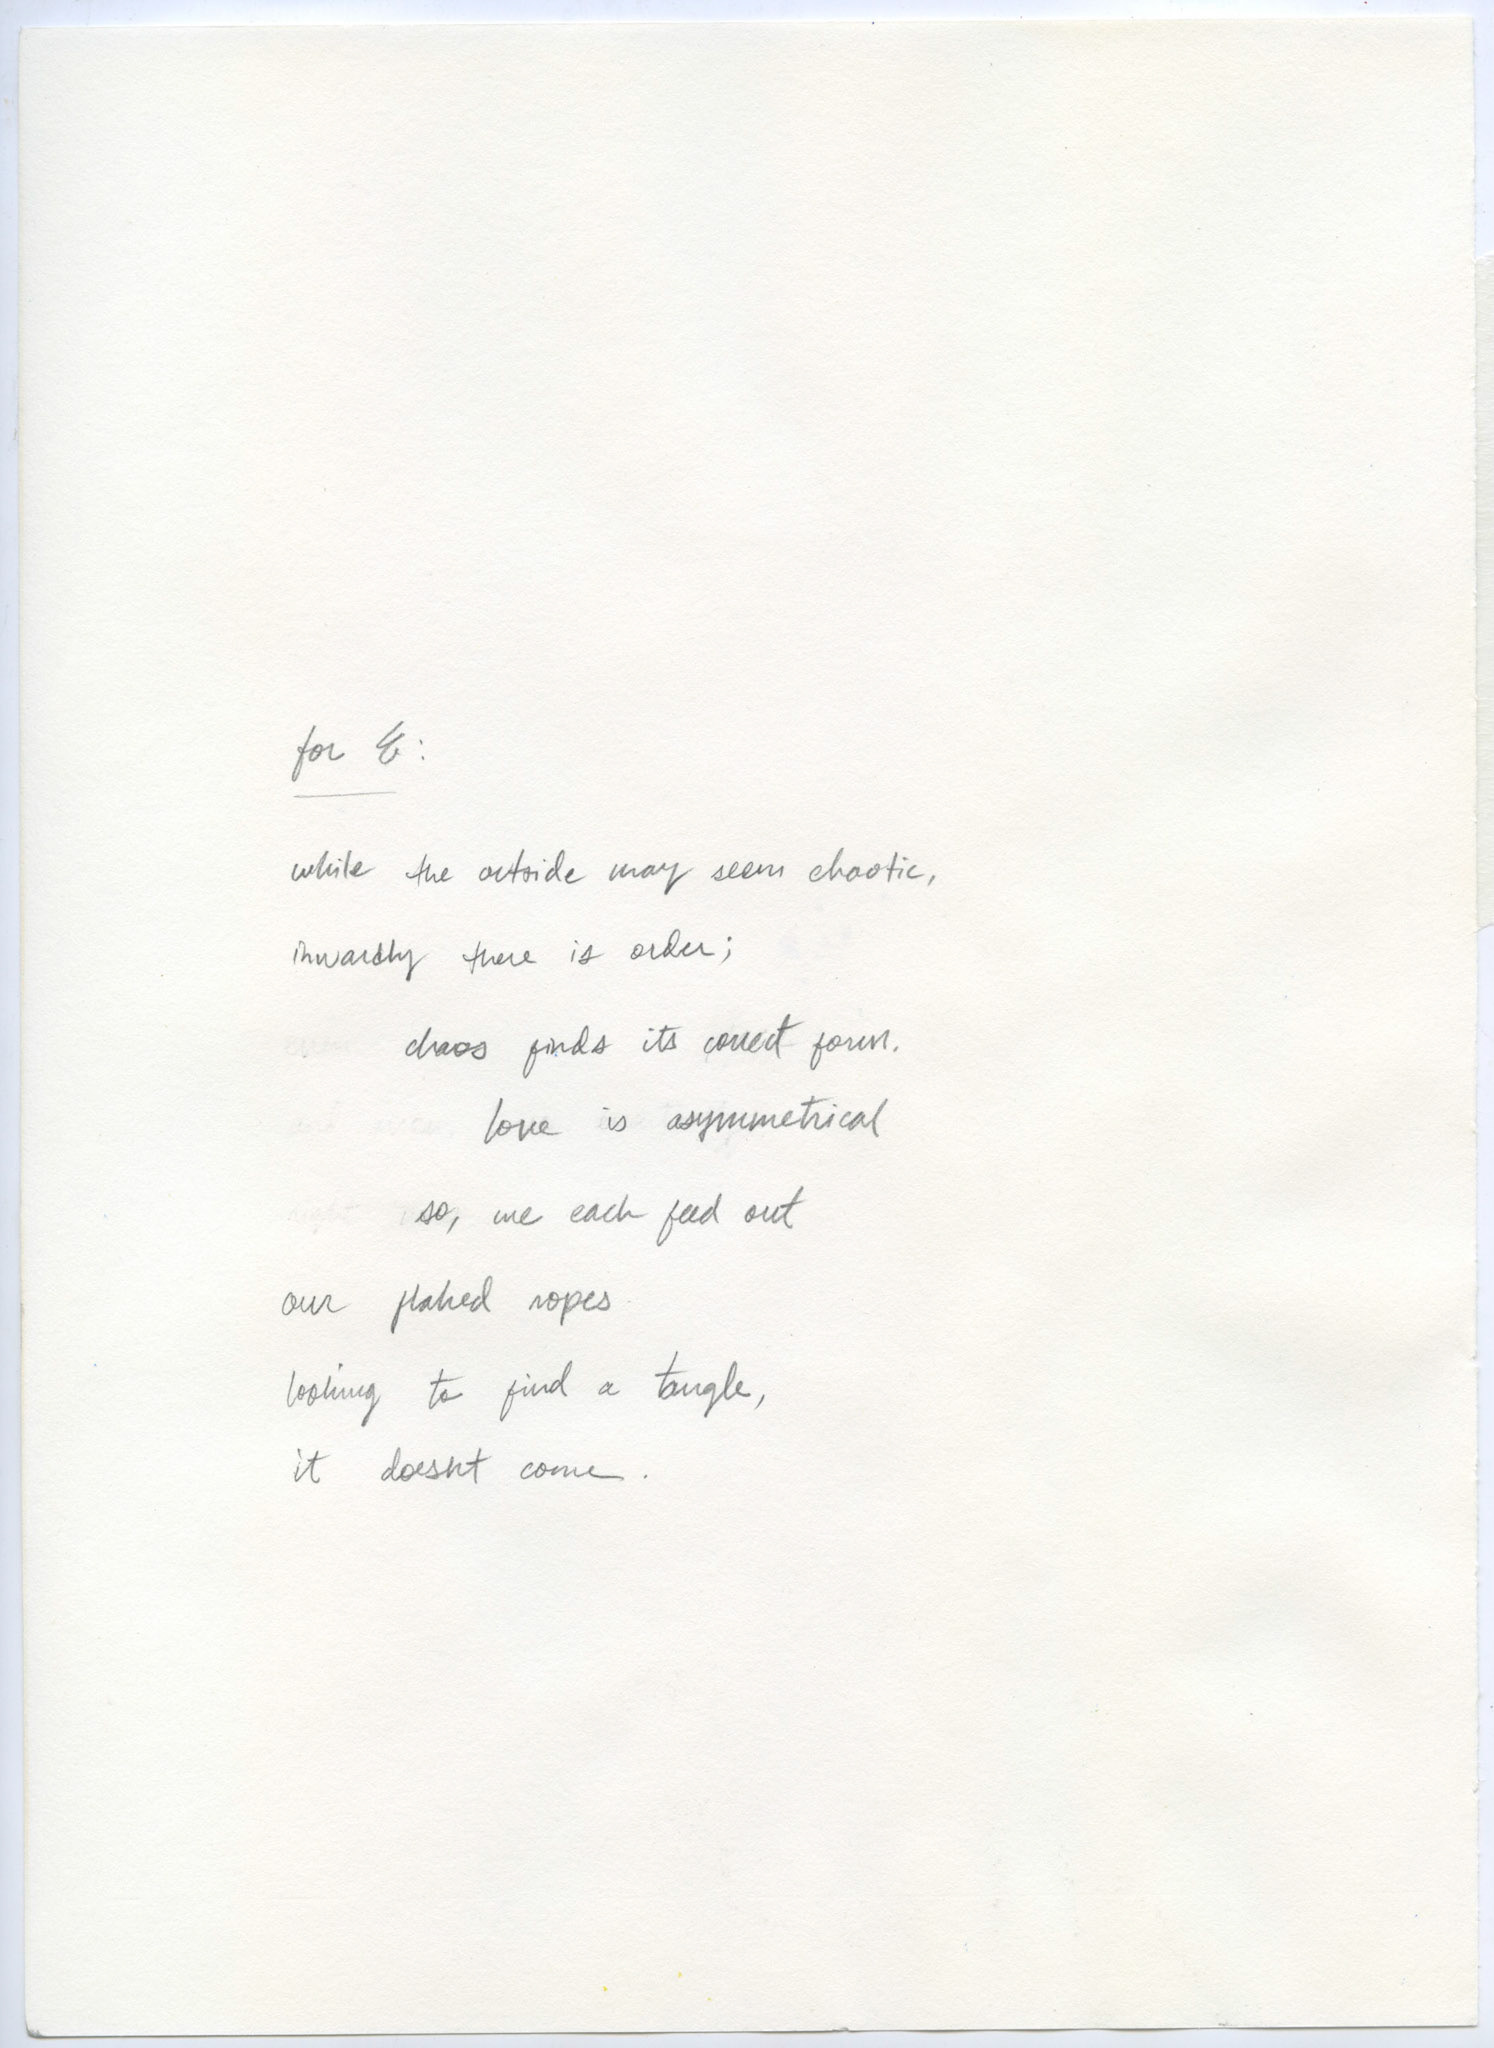 for E:
while the outside may seem chaotic,
inwardly there is order;
chaos finds its correct form.
love is asymmetrical
so, we each feed out
our flaked ropes
looking to find a tangle,
it doesnt come.